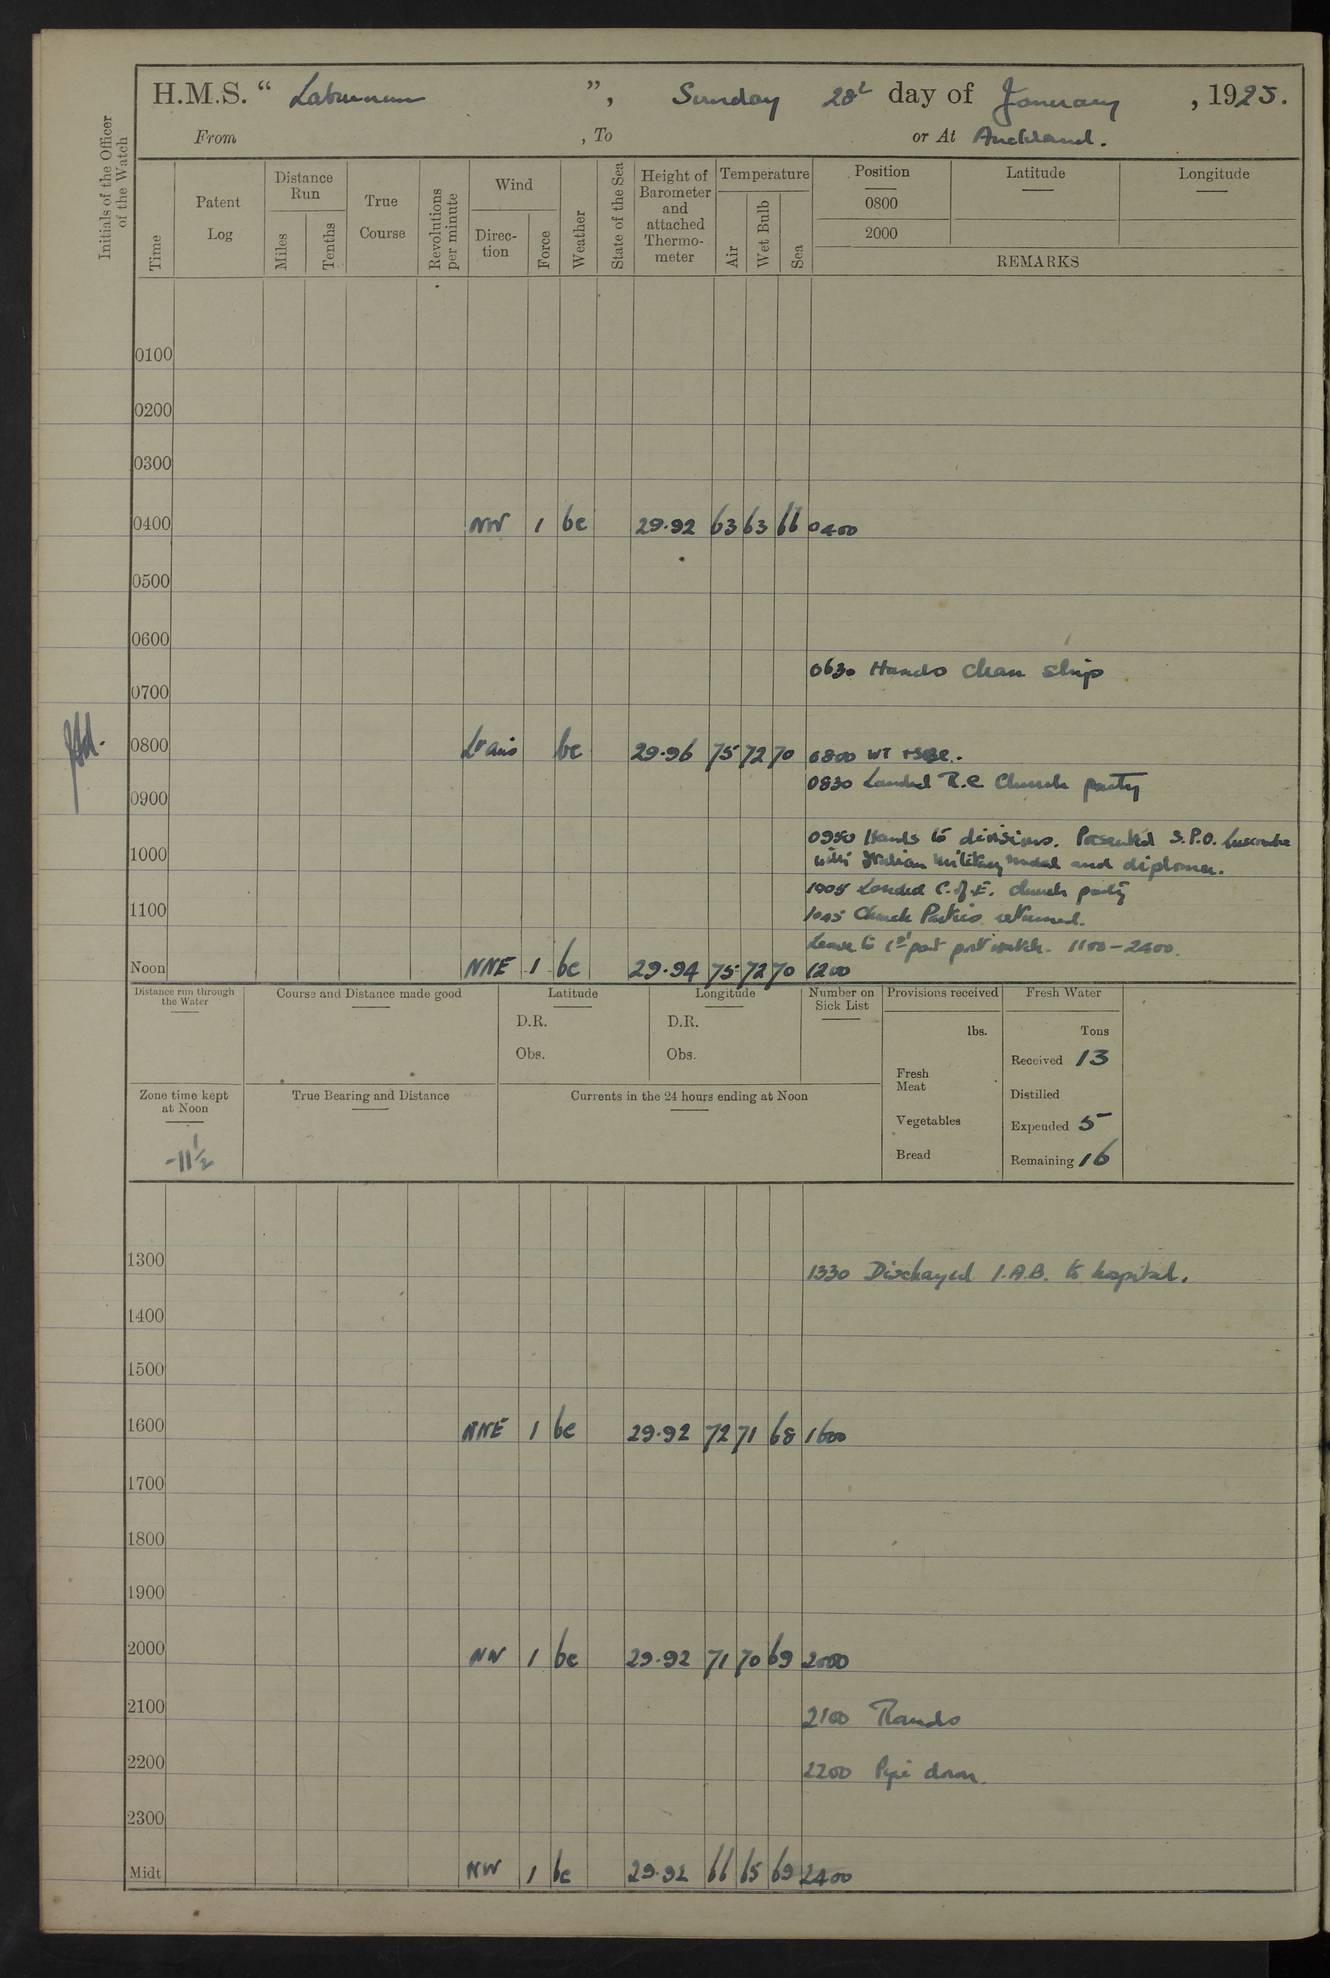 H.M.S. “ Laburnum ”, Sunday 28th day of January , 1925.
From , To or At Auckland.
Initials of the Officer of the Watch
Time
Patent Log
Distance Run
Miles
Tenths
True Course
Revolutions per minute
Wind
Direc-tion
Force
Weather
State of the Sea
Height of Barometer and attached Thermo-meter
Temperature
Air
Wet Bulb
Sea
Position Latitude Longitude
0800
2000
REMARKS
0100
0200
0300
0400 NW 1 bc 29.92 63 63 66 0400
0500
0600
0630 Hands clean ship
0700
0800 Lt airs bc 29.96 75 72 70 0800 WT
0830 Landed R.C Church party
0900
0950 Hands to divisions. Presented S.P.O.
1000 with Italian military medal and diploma.
1005 Landed C. of E. church party
1100 1045 Church Parties returned.
Leave to 1st part port watch. 1100-2400.
Noon NNE 1 bc 29.94 75 72 70 1200
Distance run through the Water
Course and Distance made good
Latitude
D.R.
Obs.
Longitude
D.R.
Obs.
Number on Sick List
Provisions received
lbs.
Fresh Meat
Vegetables
Bread
Fresh Water
Tons
Received 13
Distilled
Expended 5
Remaining 16
Zone time kept at Noon
-11½
True Bearing and Distance
Currents in the 24 hours ending at Noon
1300
1330 Discharged 1 A.B. to hospital.
1400
1500
1600 NNE 1 bc 29.92 72 71 68 1600
1700
1800
1900
2000 NW 1 bc 29.92 71 70 69 2000
2100 2100 Rounds
2200 2200 Pipe down.
2300
Midt NW 1 bc 29.92 66 65 69 2400